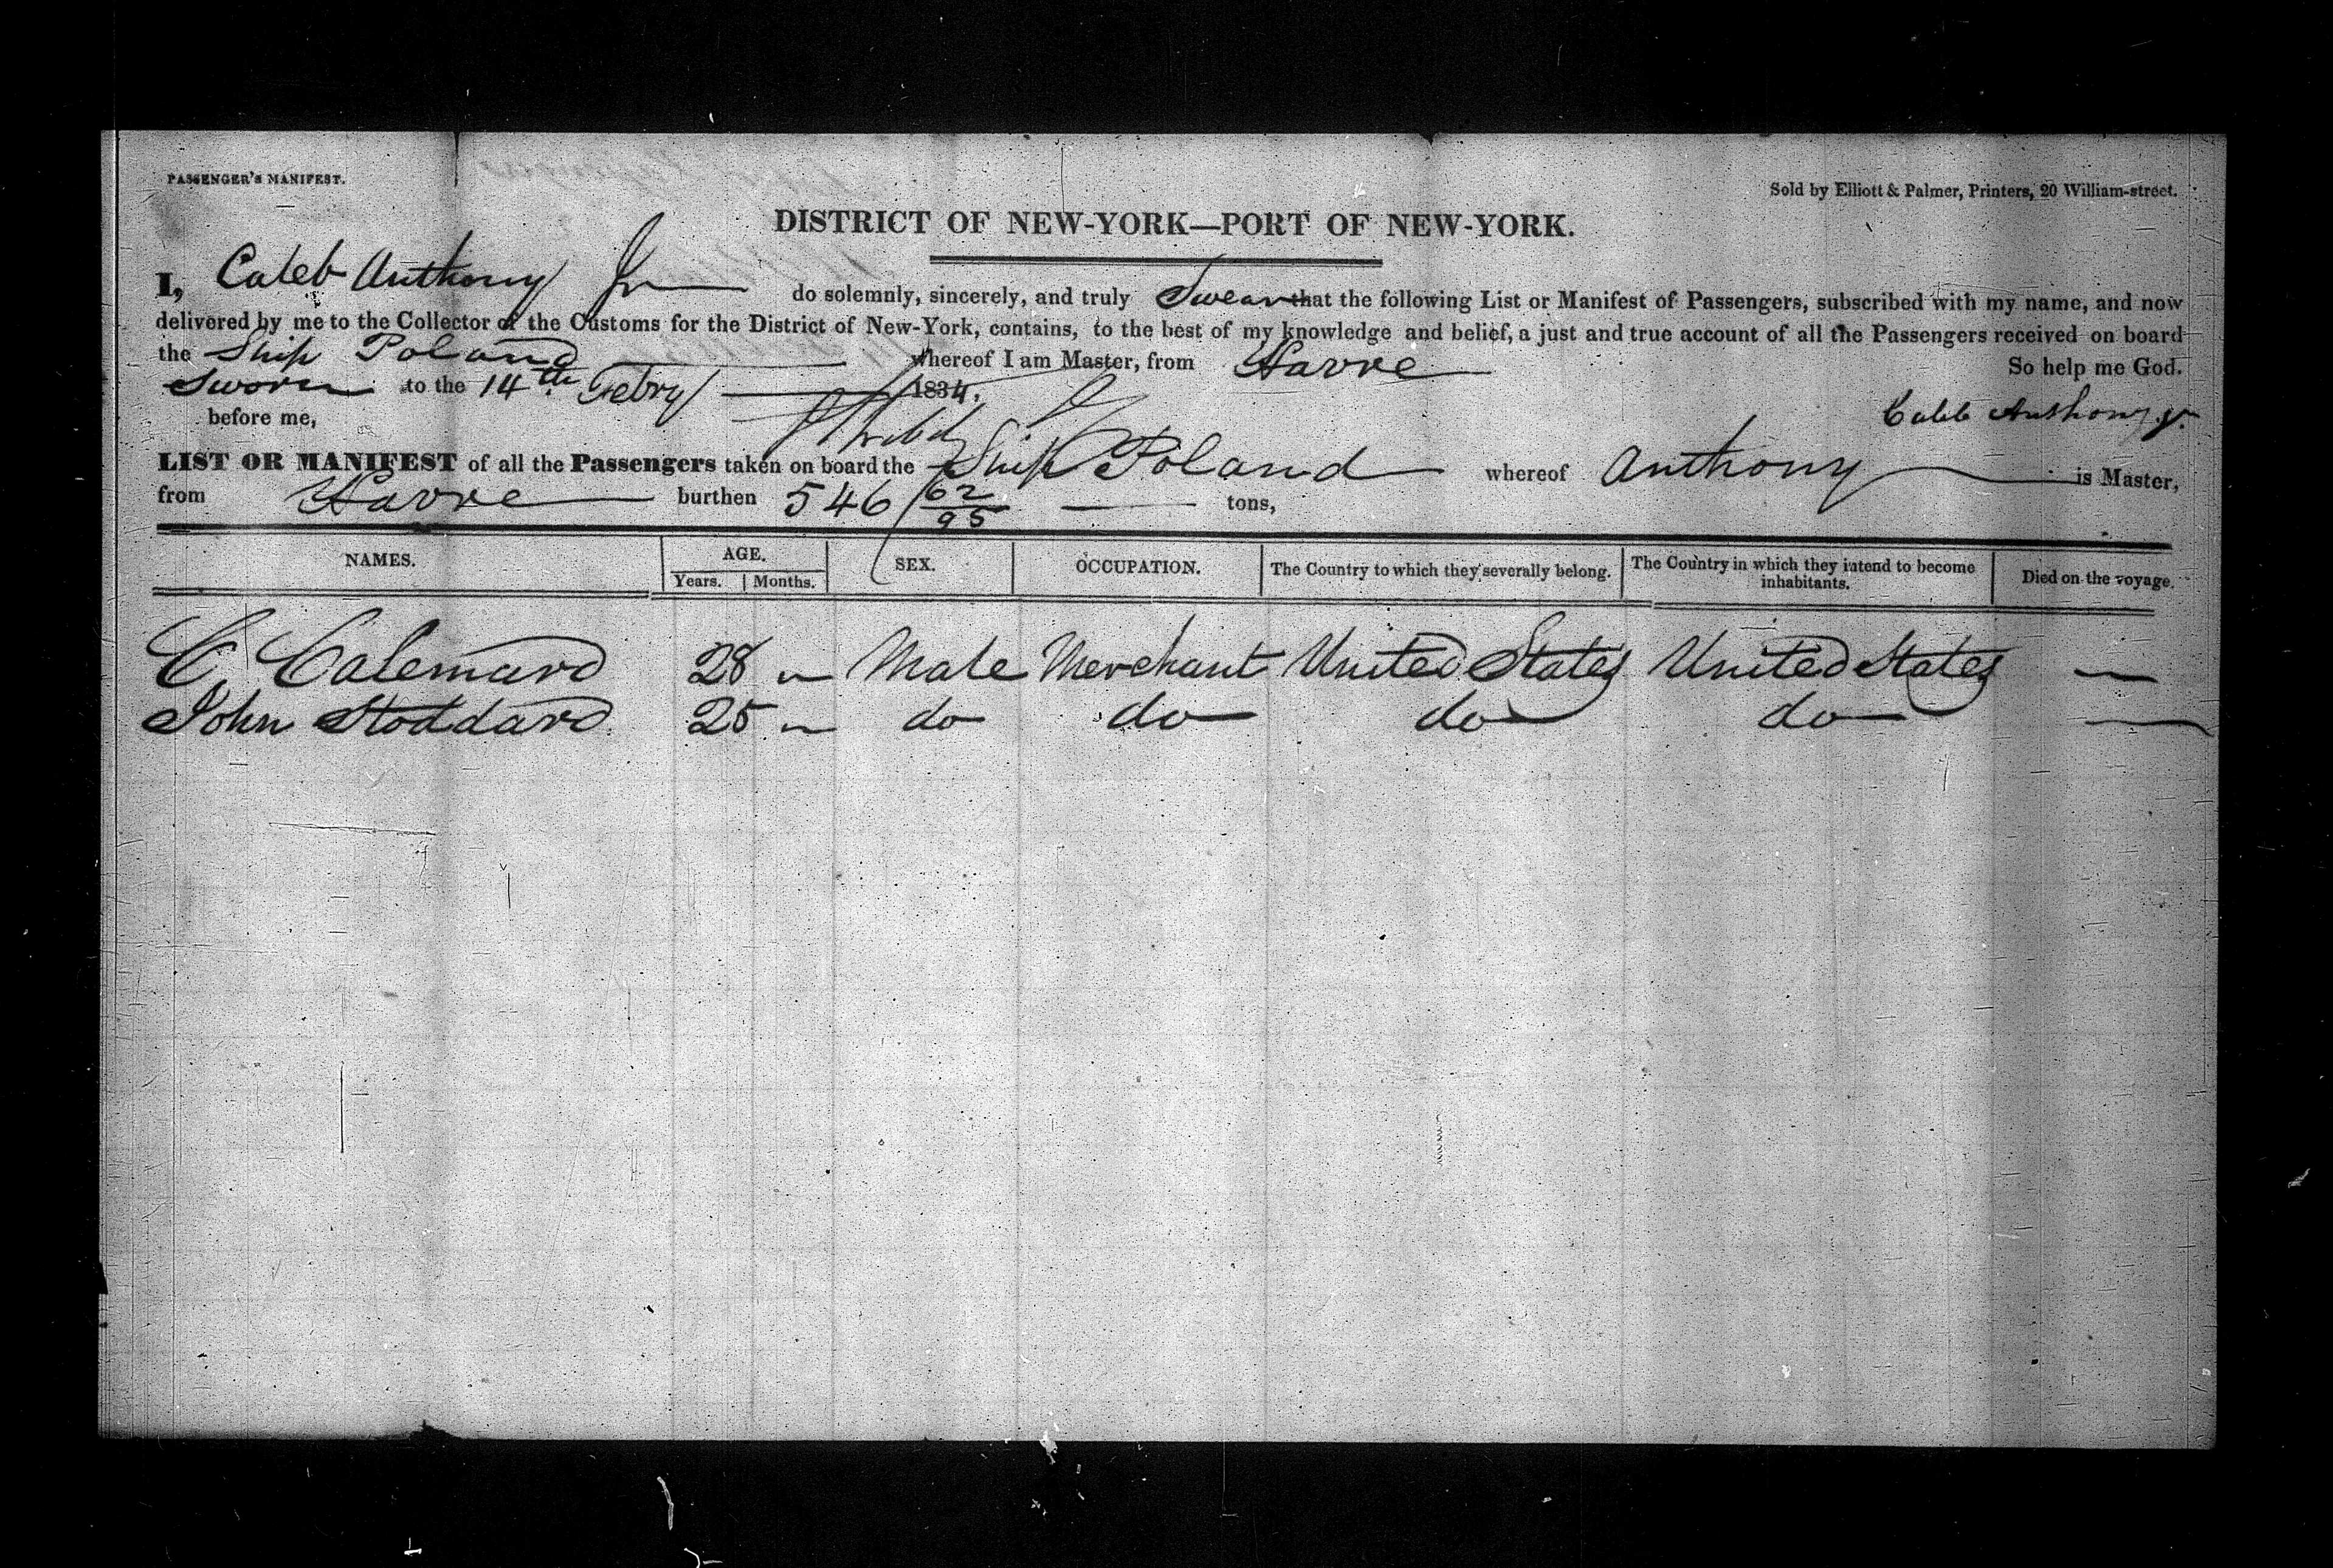 PASSENGER'S MANIFEST.
Sold by Elliott & Palmer, Printers, 20 William-street.
DISTRICT OF NEW-YORK—PORT OF NEW-YORK.
I, Caleb Anthony Jr do solemnly, sincerely, and truly Swear that the following List or Manifest of Passengers, subscribed with my name, and now
delivered by me to the Collector of the Customs for the District of New-York, contains, to the best of my knowledge and belief, a just and true account of all the Passengers received on board
the Ship Poland whereof I am Master, from Havre So help me God.
Sworn to the 14th Febry 1834.
before me, Caleb Anthony Jr.
LIST OR MANIFEST of all the Passengers taken on board the Ship Poland whereof Anthony is Master,
from Havre burthen 546 62/95 tons,
NAMES. AGE. SEX. OCCUPATION. The Country to which they severally belong. The Country in which they intend to become inhabitants. Died on the voyage.
Years. Months.
C Calemard 28 — Male Merchant United States United States —
John Stoddard 25 — do do do do —